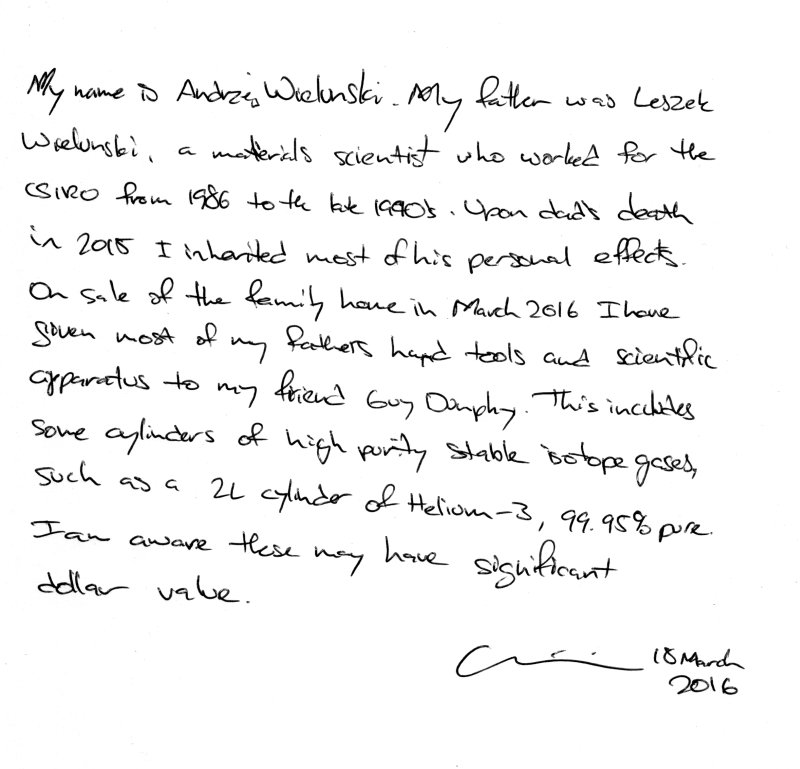 My name is Andrzej Wielunski. My father was Leszek
Wielunski, a materials scientist who worked for the
CSIRO from 1986 to the late 1990's. Upon dad's death
in 2015 I inherited most of his personal effects.
On sale of the family home in March 2016 I have
given most of my fathers hand tools and scientific
apparatus to my friend Guy Dunphy. This includes
some cylinders of high purity stable isotope gases,
such as a 2L cylinder of Helium-3, 99.95% pure.
I am aware these may have significant
dollar value.
18 March
2016